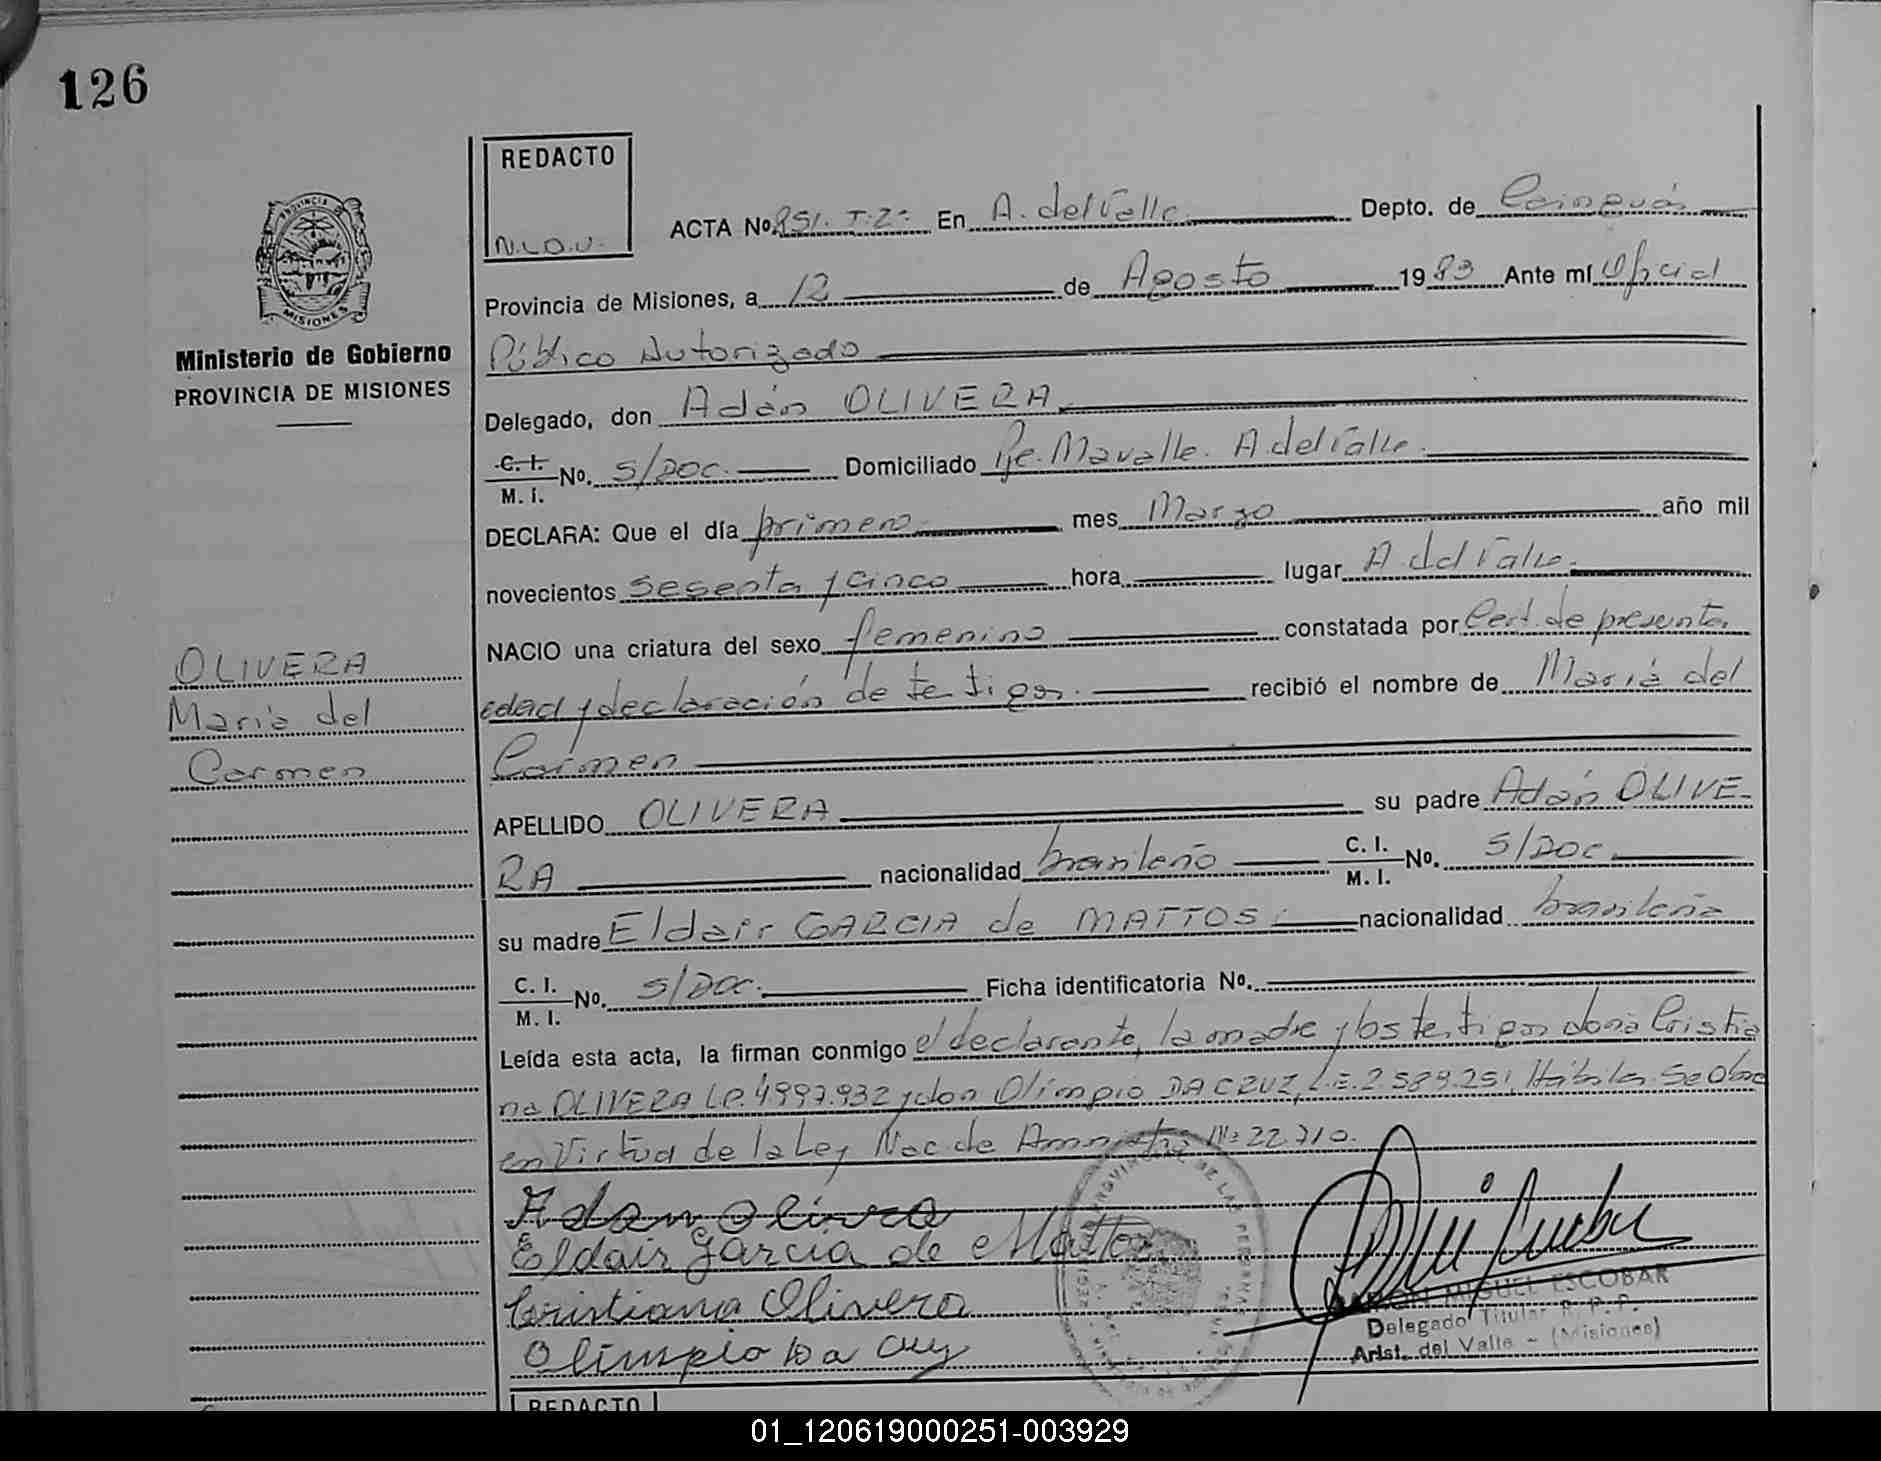 126
REDACTO
N.L.O.U.
PROVINCIA DE
MISIONES
Ministerio de Gobierno
PROVINCIA DE MISIONES
ACTA No. 851. T.2º En A. del Valle Depto. de Cainguás
Provincia de Misiones, a 12 de Agosto 1983 Ante mí Oficial
Público Autorizado
Delegado, don Adán OLIVERA
C. I. M. I. No. S/DOC. Domiciliado Pje. Mavalle. A del Valle.
DECLARA: Que el día primero mes Marzo año mil
novecientos sesenta y cinco hora lugar A. del Valle.
NACIO una criatura del sexo femenino constatada por Cert. de presunta
edad y declaración de testigos. recibió el nombre de María del
Carmen
APELLIDO OLIVERA su padre Adán OLIVE-
RA nacionalidad brasileño C. I. M. I. No. S/DOC.
su madre Eldair GARCIA de MATTOS. nacionalidad brasileña
C. I. M. I. No. S/DOC. Ficha identificatoria No.
Leída esta acta, la firman conmigo el declarante, la madre y los testigos doña Cristia
na OLIVERA L.C. 4.997.932 y don Olimpio DA CRUZ, L.E. 2.589.251, Hábiles. Se Obra
en Virtud de la Ley Nac. de Amnistía Nº 22.710.
OLIVERA
María del
Carmen
Adan olivra
Eldair Garcia de Mattos
Cristiana Olivera
Olimpio Da Cruz
MIGUEL ESCOBAR
Delegado Titular R. P. P.
Arist. del Valle - (Misiones)
REDACTO
01_120619000251-003929